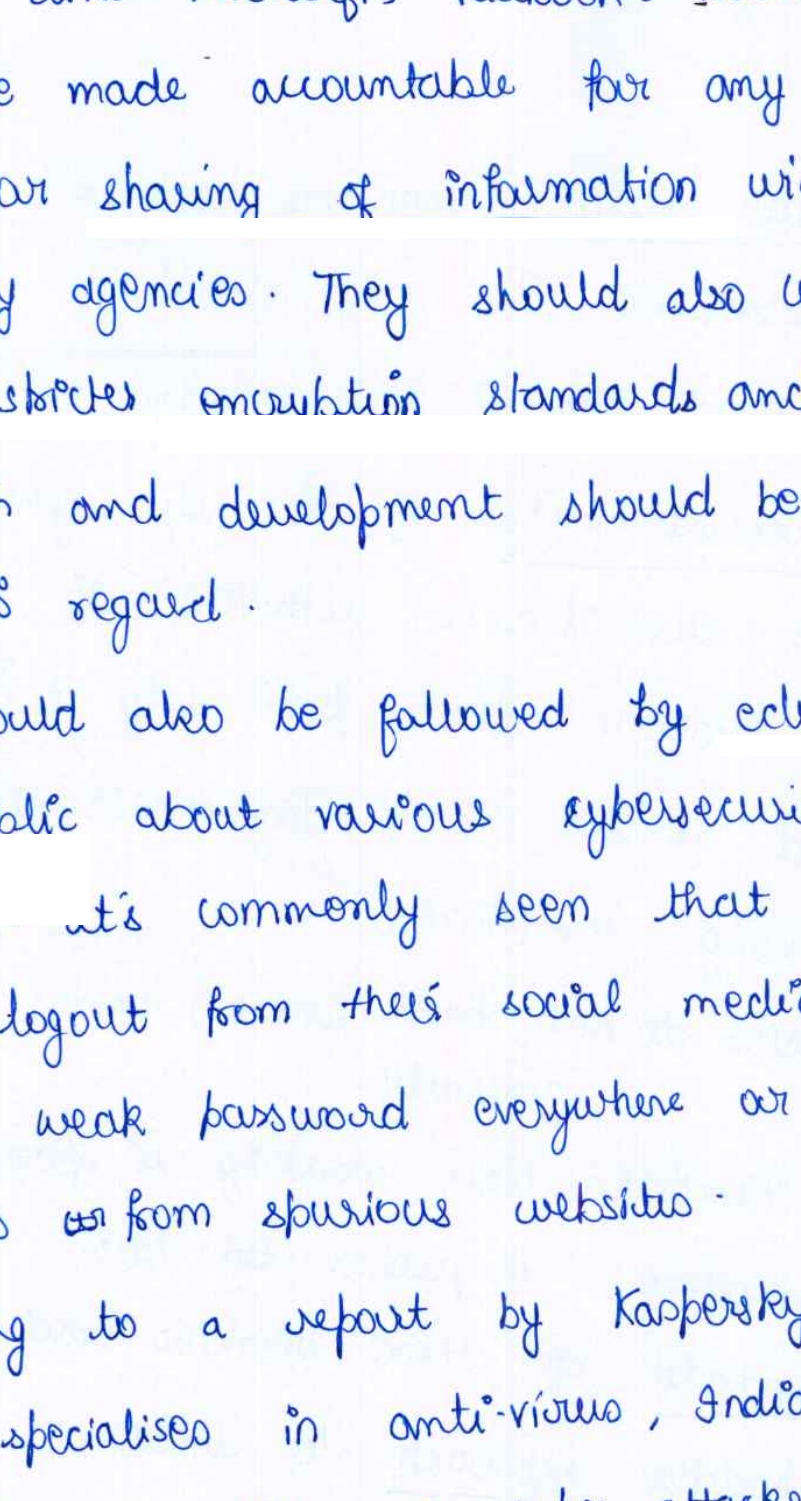 made accountable for any
or sharing of information
agencies. They should also
stricter encryption standards
and development should be
regard.
also be followed by
about various
it's commonly seen that
logout from their social
weak password everywhere or
from spurious websites.
to a report by Kaspersky
specialises in anti-virus,